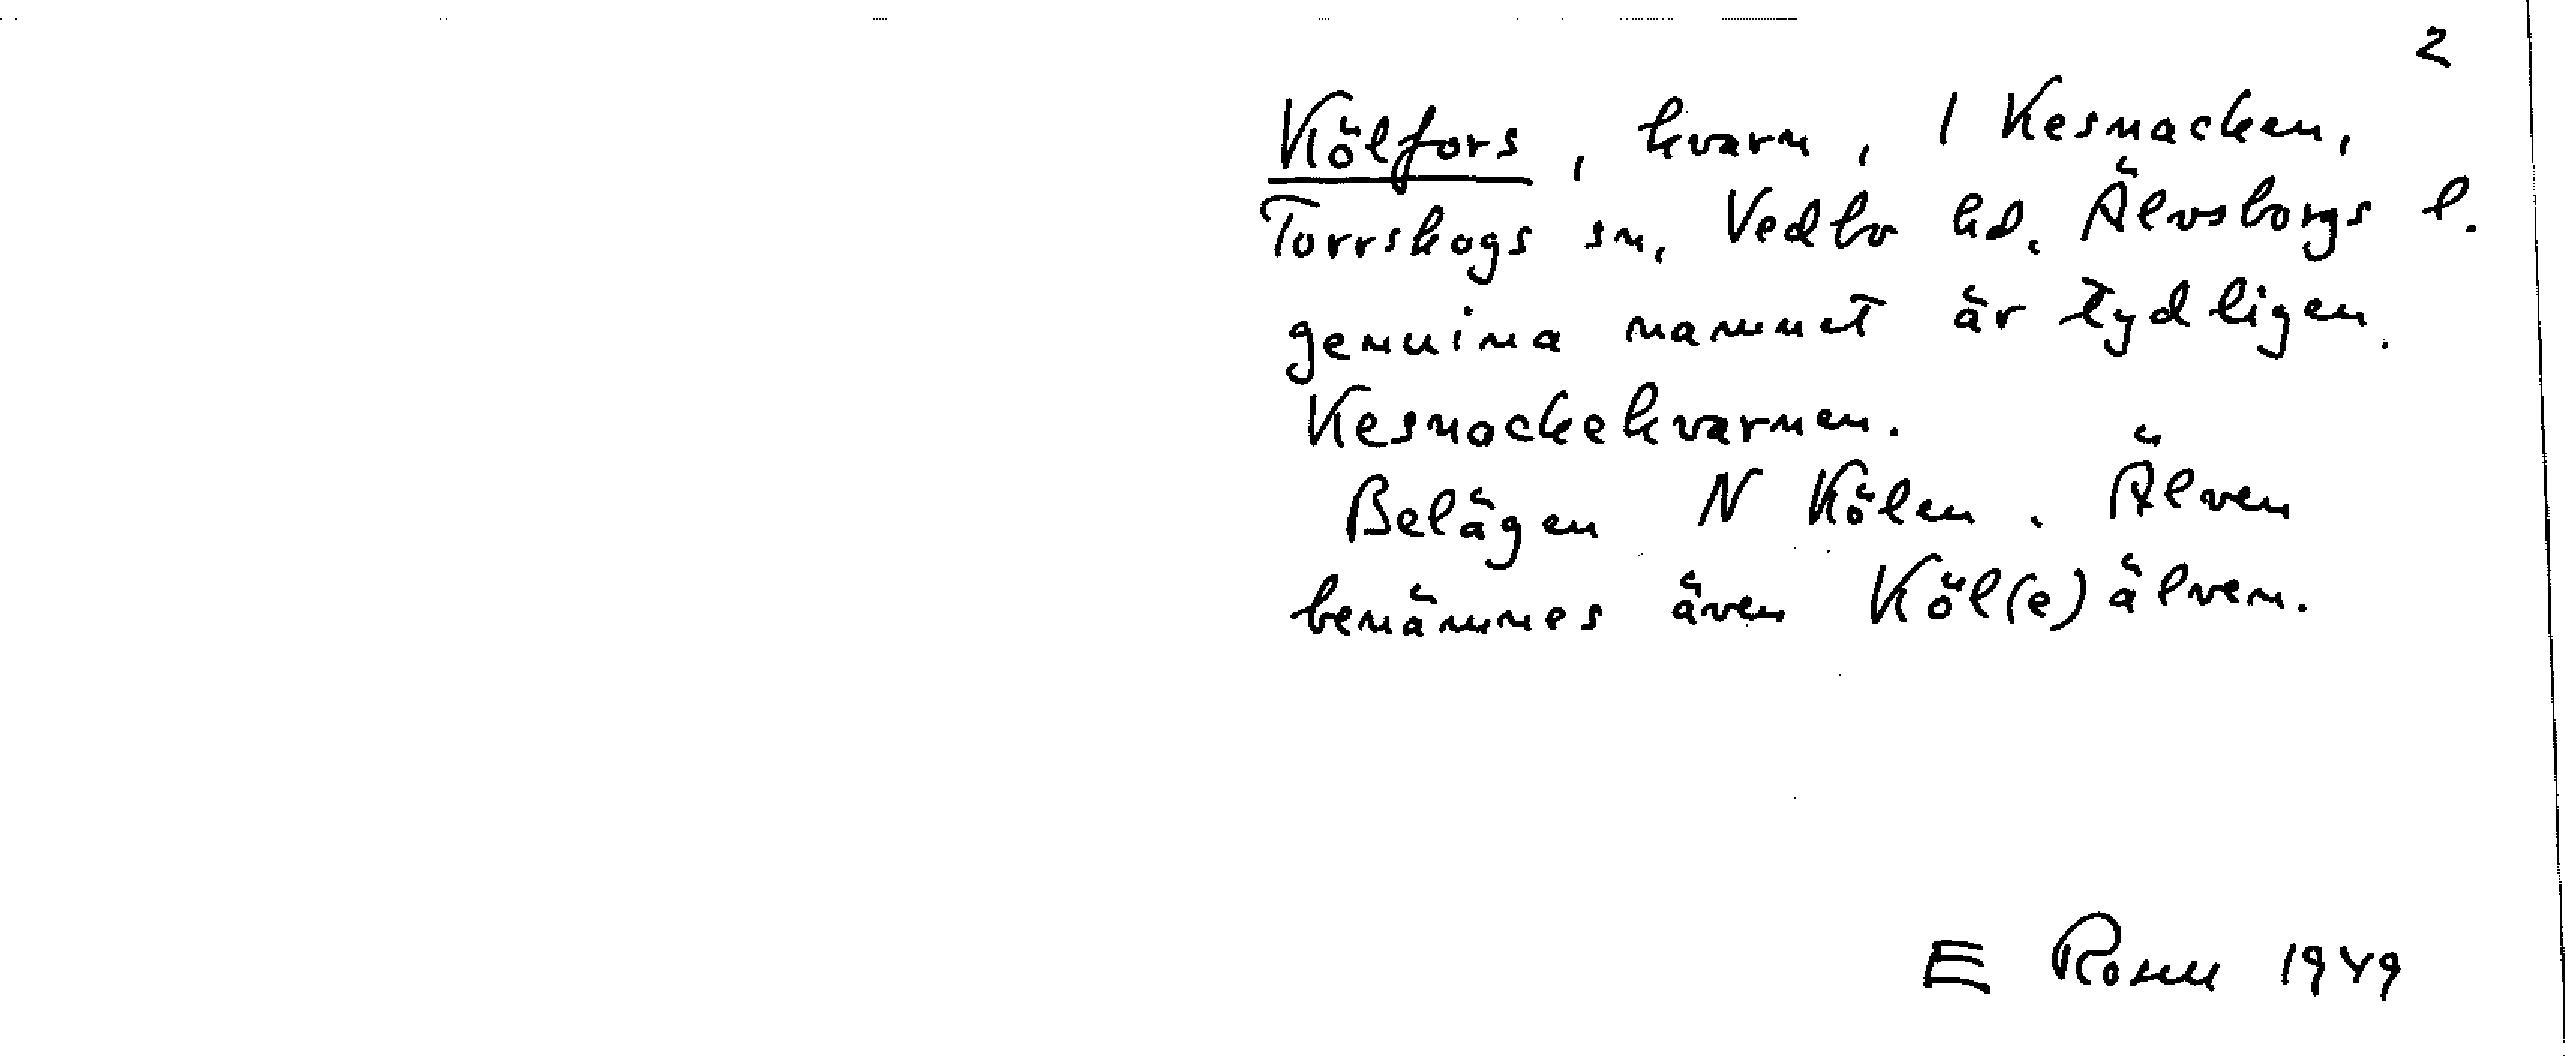 2
Kölfors, kvarn, 1 Kesnacken,
Torrskogs sn, Vedbo hd. Älvsborgs l.
genuina namnet är tydligen
Kesnackekvarnen.
Belägen N Kölen. Älven
benämnes även Köl(e)älven.
E Rosell 1949